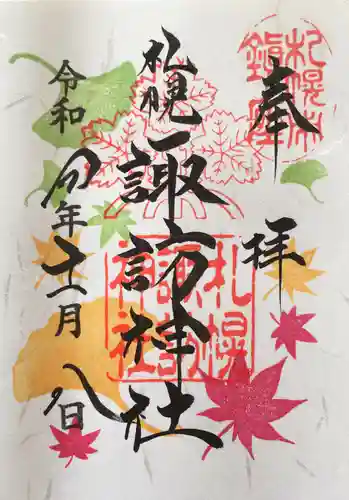 奉拝
札幌鎮座
札幌諏訪神社
札幌諏訪神社
令和四年十一月八日